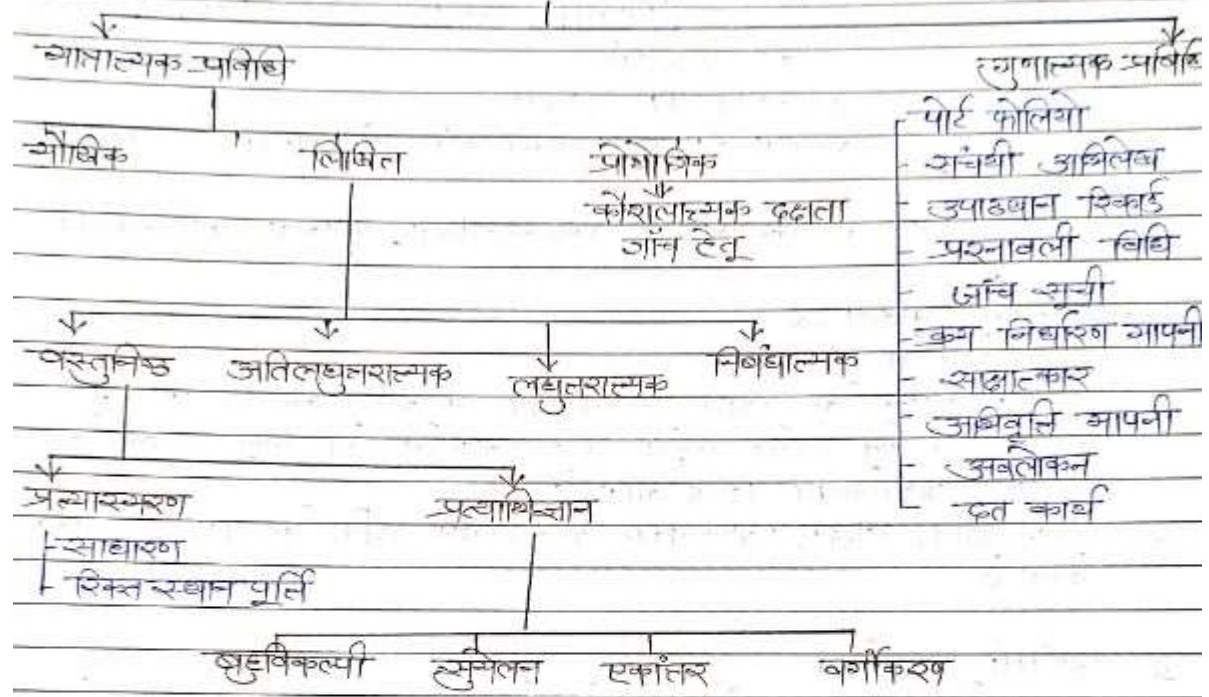 मात्रात्मक प्रविधि
गुणात्मक प्रविधि
मौखिक
लिखित
प्रायोगिक
कौशलात्मक दक्षता
जाँच हेतू
पोर्ट फोलियो
संचयी अभिलेख
उपाख्यान रिकार्ड
प्रश्नावली विधि
जाँच सूची
क्रम निर्धारण मापनी
साक्षात्कार
अभिवृत्ति मापनी
अवलोकन
दत कार्य
वस्तुनिष्ठ
अतिलघुतरात्मक
लघुतरात्मक
निबंधात्मक
प्रत्यास्मरण
साधारण
रिक्त स्थान पूर्ति
प्रत्याभिज्ञान
बहुविकल्पी
सुमेलन
एकांतर
वर्गीकरण